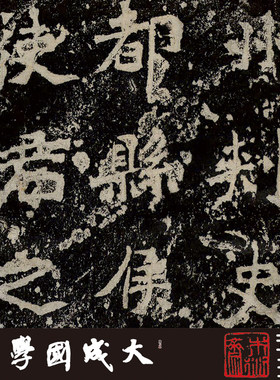 州刺史
都縣侯
使君之
大成國學